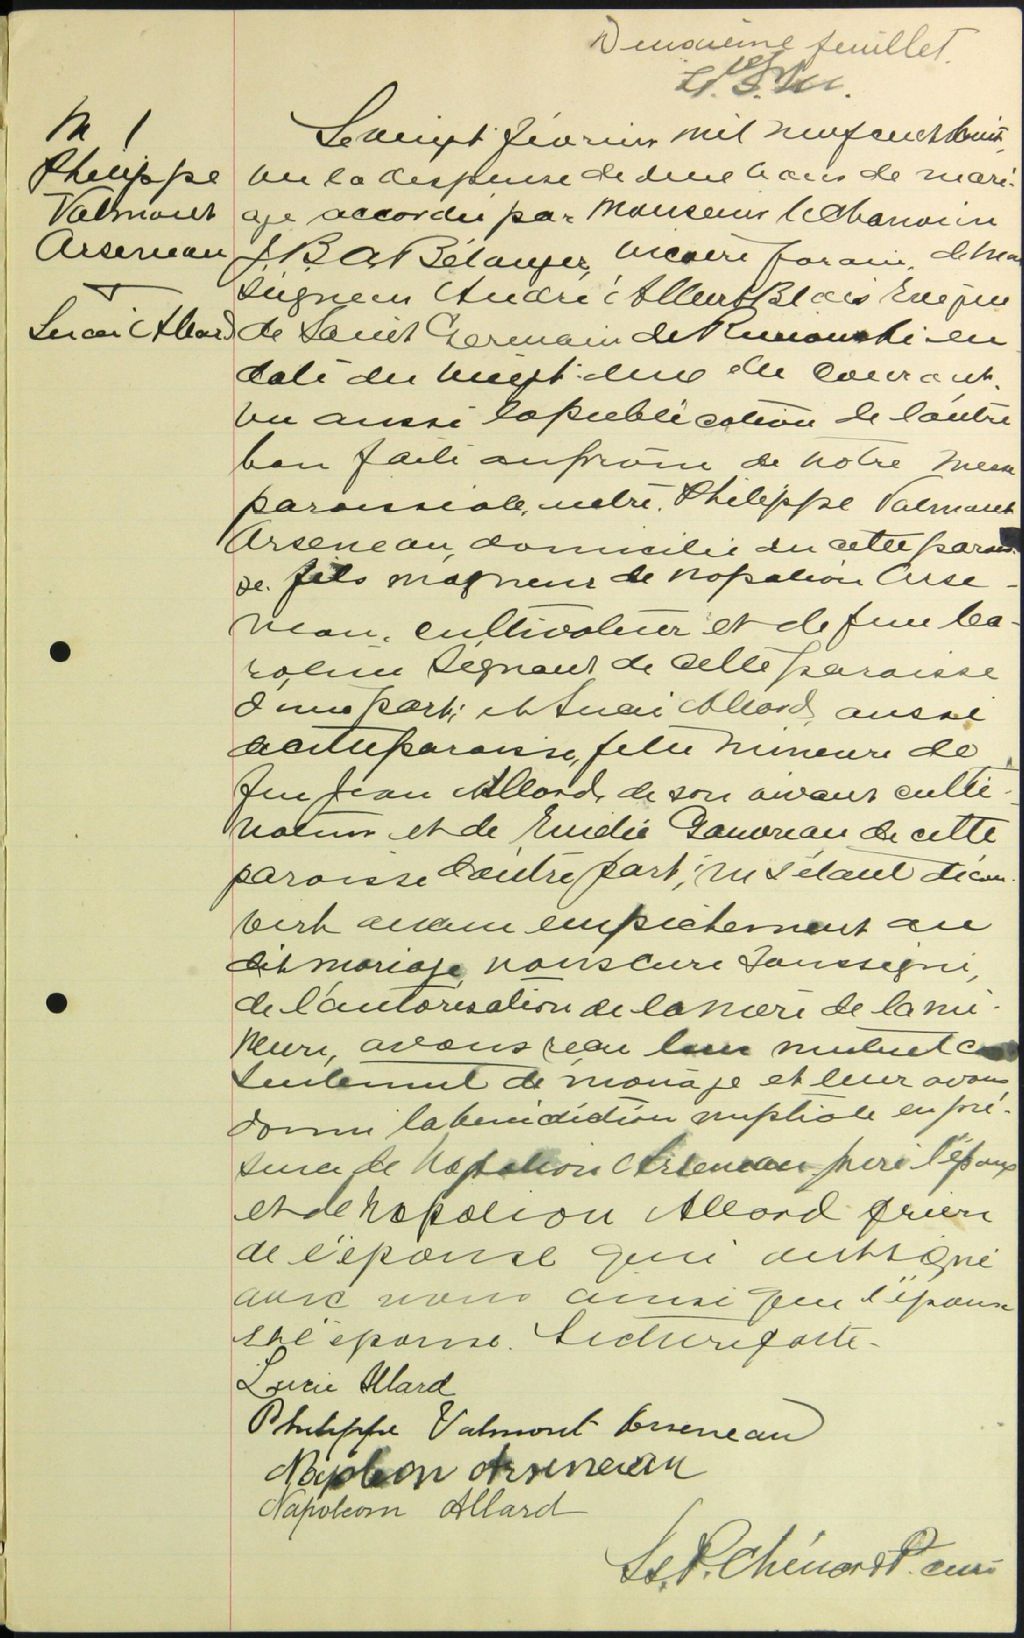 Deuxième feuillet.
M 1
Philippe
Valmont
Arseneau
&
Lucie Allard
Le vingt février mil neuf cent huit,
vu la dispense de deux bans de mari-
age accordée par Monsieur le Chanoine
J. B. A. Bélanger, vicaire forain, de Mon
seigneur André Albert Blais Evêque
de Saint Germain de Rimouski en
date du du courant.
vu aussi la publication de l'autre
ban faite au prône de notre messe
paroissiale, entre Philippe Valmont
Arseneau, domicilié de cette parois
se. fils mageur de Napoléon Arse-
neau, cultivateur et de feue Ca-
roline de cette paroisse
d'une part; et Lucie Allard, aussi
de cette paroisse, fille mineure de
feu Jean Allard, de son vivant culti-
vateur et de Emélie Gauvreau de cette
paroisse d'autre part; ne s'étant décou-
vert aucun empêchement au
dit mariage, nous curé soussigné,
de l'autorisation de la mère de la mi-
neure, avons reçu leur mutuel con
sentement de mariage et leur avons
donné la bénédiction nuptiale en pré-
sence de Napoléon Arseneau père l'époux
et de Napoléon Allard frère
de l'épouse qui ont signé
avec nous ainsi que l'époux
et l'épouse. Lecture faite-
Lucie Allard
Philippe Valmont Arseneau
Napoleon Arseneau
Napoleon Allard
Ls. P. Chénard Ptre curé